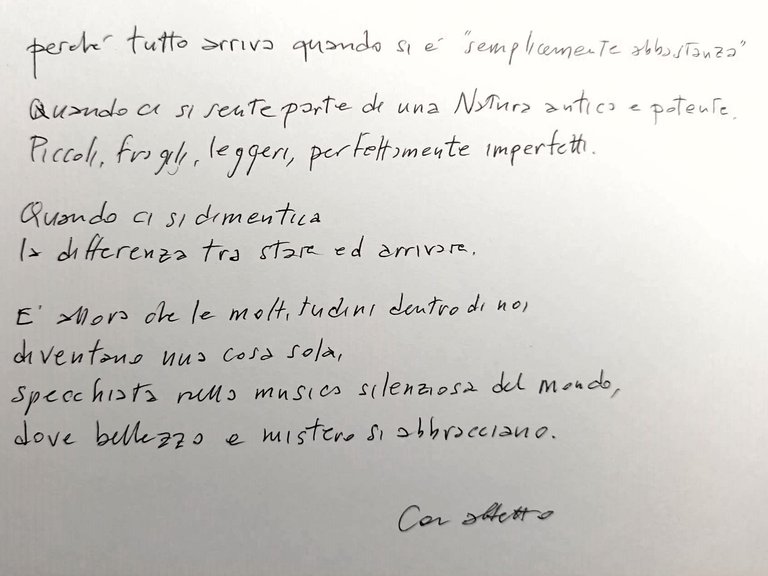 perché tutto arriva quando si è "semplicemente abbastanza"
Quando ci si sente parte di una Natura antica e potente.
Piccoli, fragili, leggeri, perfettamente imperfetti.
Quando ci si dimentica
la differenza tra stare ed arrivare.
E' allora che le moltitudini dentro di noi
diventano una cosa sola,
specchiata nella musica silenziosa del mondo,
dove bellezza e mistero si abbracciano.
Con affetto